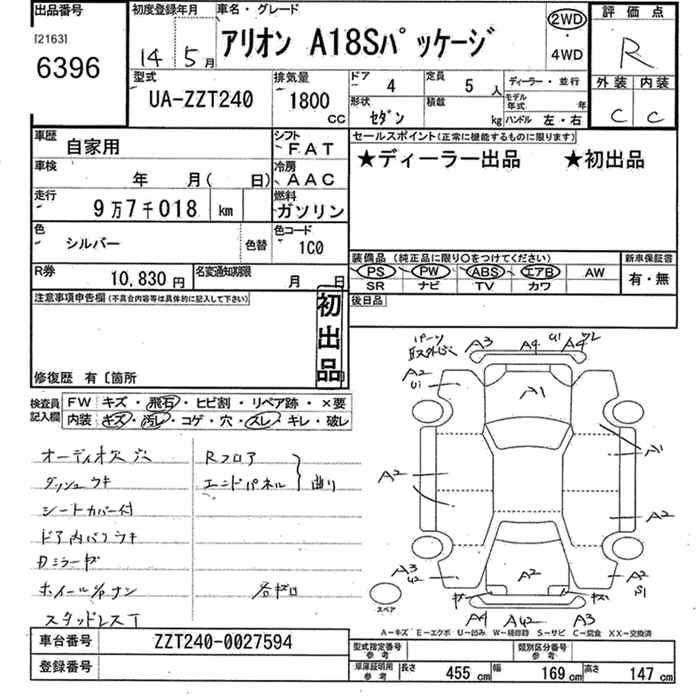 出品番号
[2163]
6396
初度登録年月
14 5月
車名・グレード
アリオン A18Sパッケージ
2WD
・
4WD
評価点
R
外装 内装
C C
型式
UA-ZZT240
排気量
1800
CC
ドア 4
形状 セダン
定員 5 人
積載 kg
ディーラー・並行
モデル年式 年
ハンドル 左・右
車歴
自家用
シフト
FAT
車検
年 月( 日)
冷房
AAC
走行
9万7千018 km
燃料
ガソリン
色
シルバー
色替
色コード
1C0
R券
10,830円
名変通知期限
月 日
セールスポイント(正常に機能するものに限ります)
★ディーラー出品 ★初出品
装備品 (純正品に限り○をつけてください)
PS PW ABS エアB AW
SR ナビ TV カワ
新車保証書
有・無
後日品
注意事項申告欄(不具合内容等は具体的に記入して下さい)
初出品
修復歴 有〔箇所
検査員記入欄
FW キズ・飛石・ヒビ割・リペア跡・×要
内装 キズ・汚レ・コゲ・穴・スレ・キレ・破レ
オーディオ欠 穴
ダッシュ ウキ
シートカバー付
ドア内バリ ウキ
ホイールキャナン
スタッドレスT
Rフロア
エンドパネル
曲り
パーツ
A3 A4 U1 A4
A2
U1
A1
A1
A2
A2
A3
U2
A2
A2
S1
A4 AU2 A3
スペア
A-キズ E-エクボ U-凹み W-補修跡 S-サビ C-腐食 XX-交換済
車台番号
ZZT240-0027594
登録番号
型式指定番号
参考
類別区分番号
参考
車庫証明用
参考
長さ 455 cm
幅 169 cm
高さ 147 cm